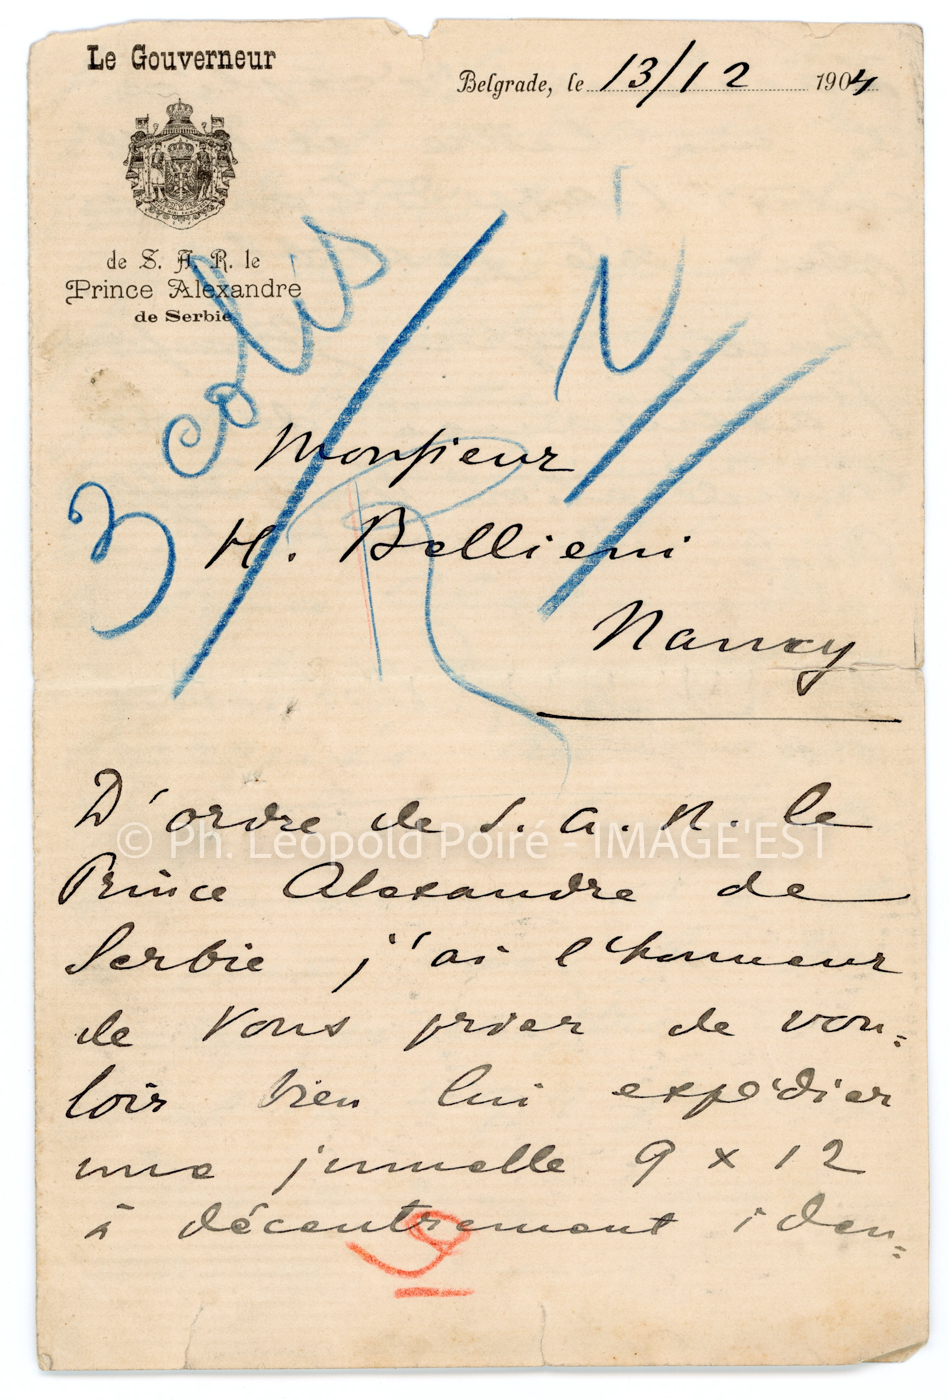 Le Gouverneur
Belgrade, le 13/12 1904
de S. A. R. le
Prince Alexandre
de Serbie
3 colis
N
Monsieur
R
H. Bellieni
Nancy
D'ordre de S. A. R. le
© Ph. Léopold Poiré - IMAGE'EST
Prince Alexandre de
Serbie j'ai l'honneur
de Vous prier de vou=
loir bien lui expédier
une jumelle 9 x 12
à décentrement iden=